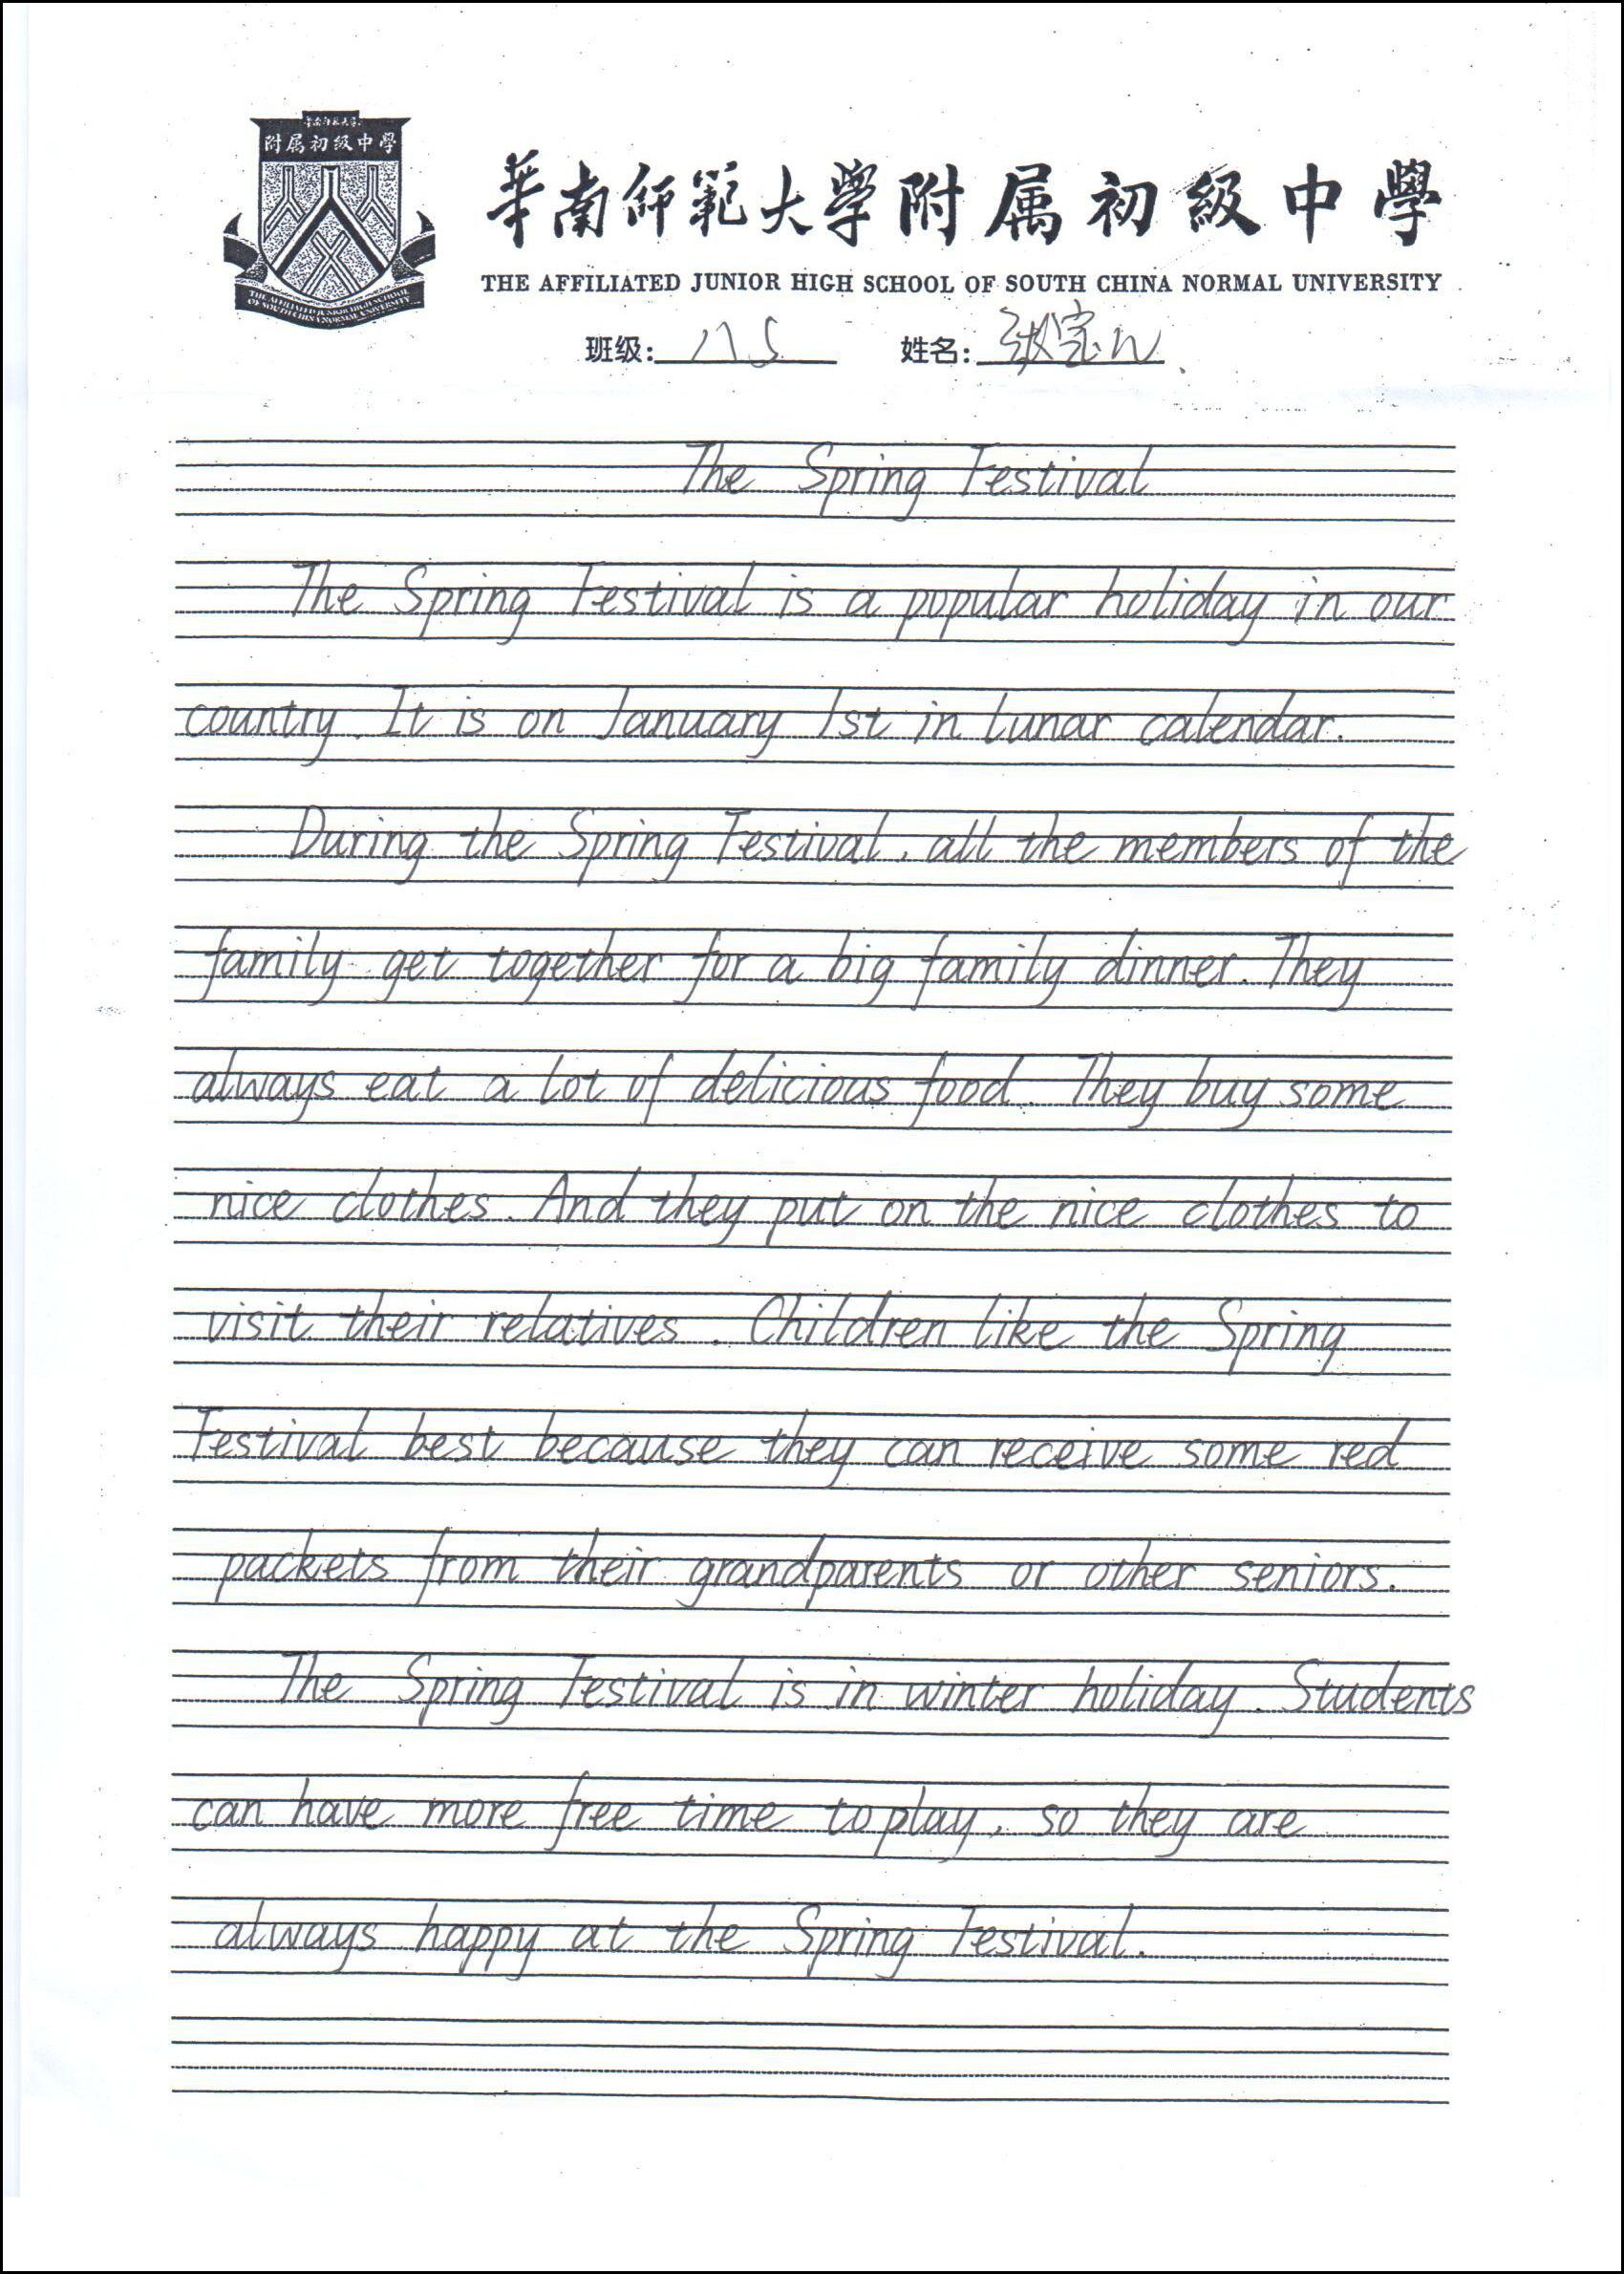 華南师范大学
附属初级中學
華南师範大學附属初级中學
THE AFFILIATED JUNIOR HIGH SCHOOL OF SOUTH CHINA NORMAL UNIVERSITY
THE AFFILIATED JUNIOR HIGH SCHOOL
OF SOUTH CHINA NORMAL UNIVERSITY
班级: 八5 姓名: 张宝
The Spring Festival
The Spring Festival is a popular holiday in our
country. It is on January 1st in lunar calendar.
During the Spring Festival, all the members of the
family get together for a big family dinner. They
always eat a lot of delicious food. They buy some
nice clothes. And they put on the nice clothes to
visit their relatives. Children like the Spring
Festival best because they can receive some red
packets from their grandparents or other seniors.
The Spring Festival is in winter holiday. Students
can have more free time to play, so they are
always happy at the Spring Festival.